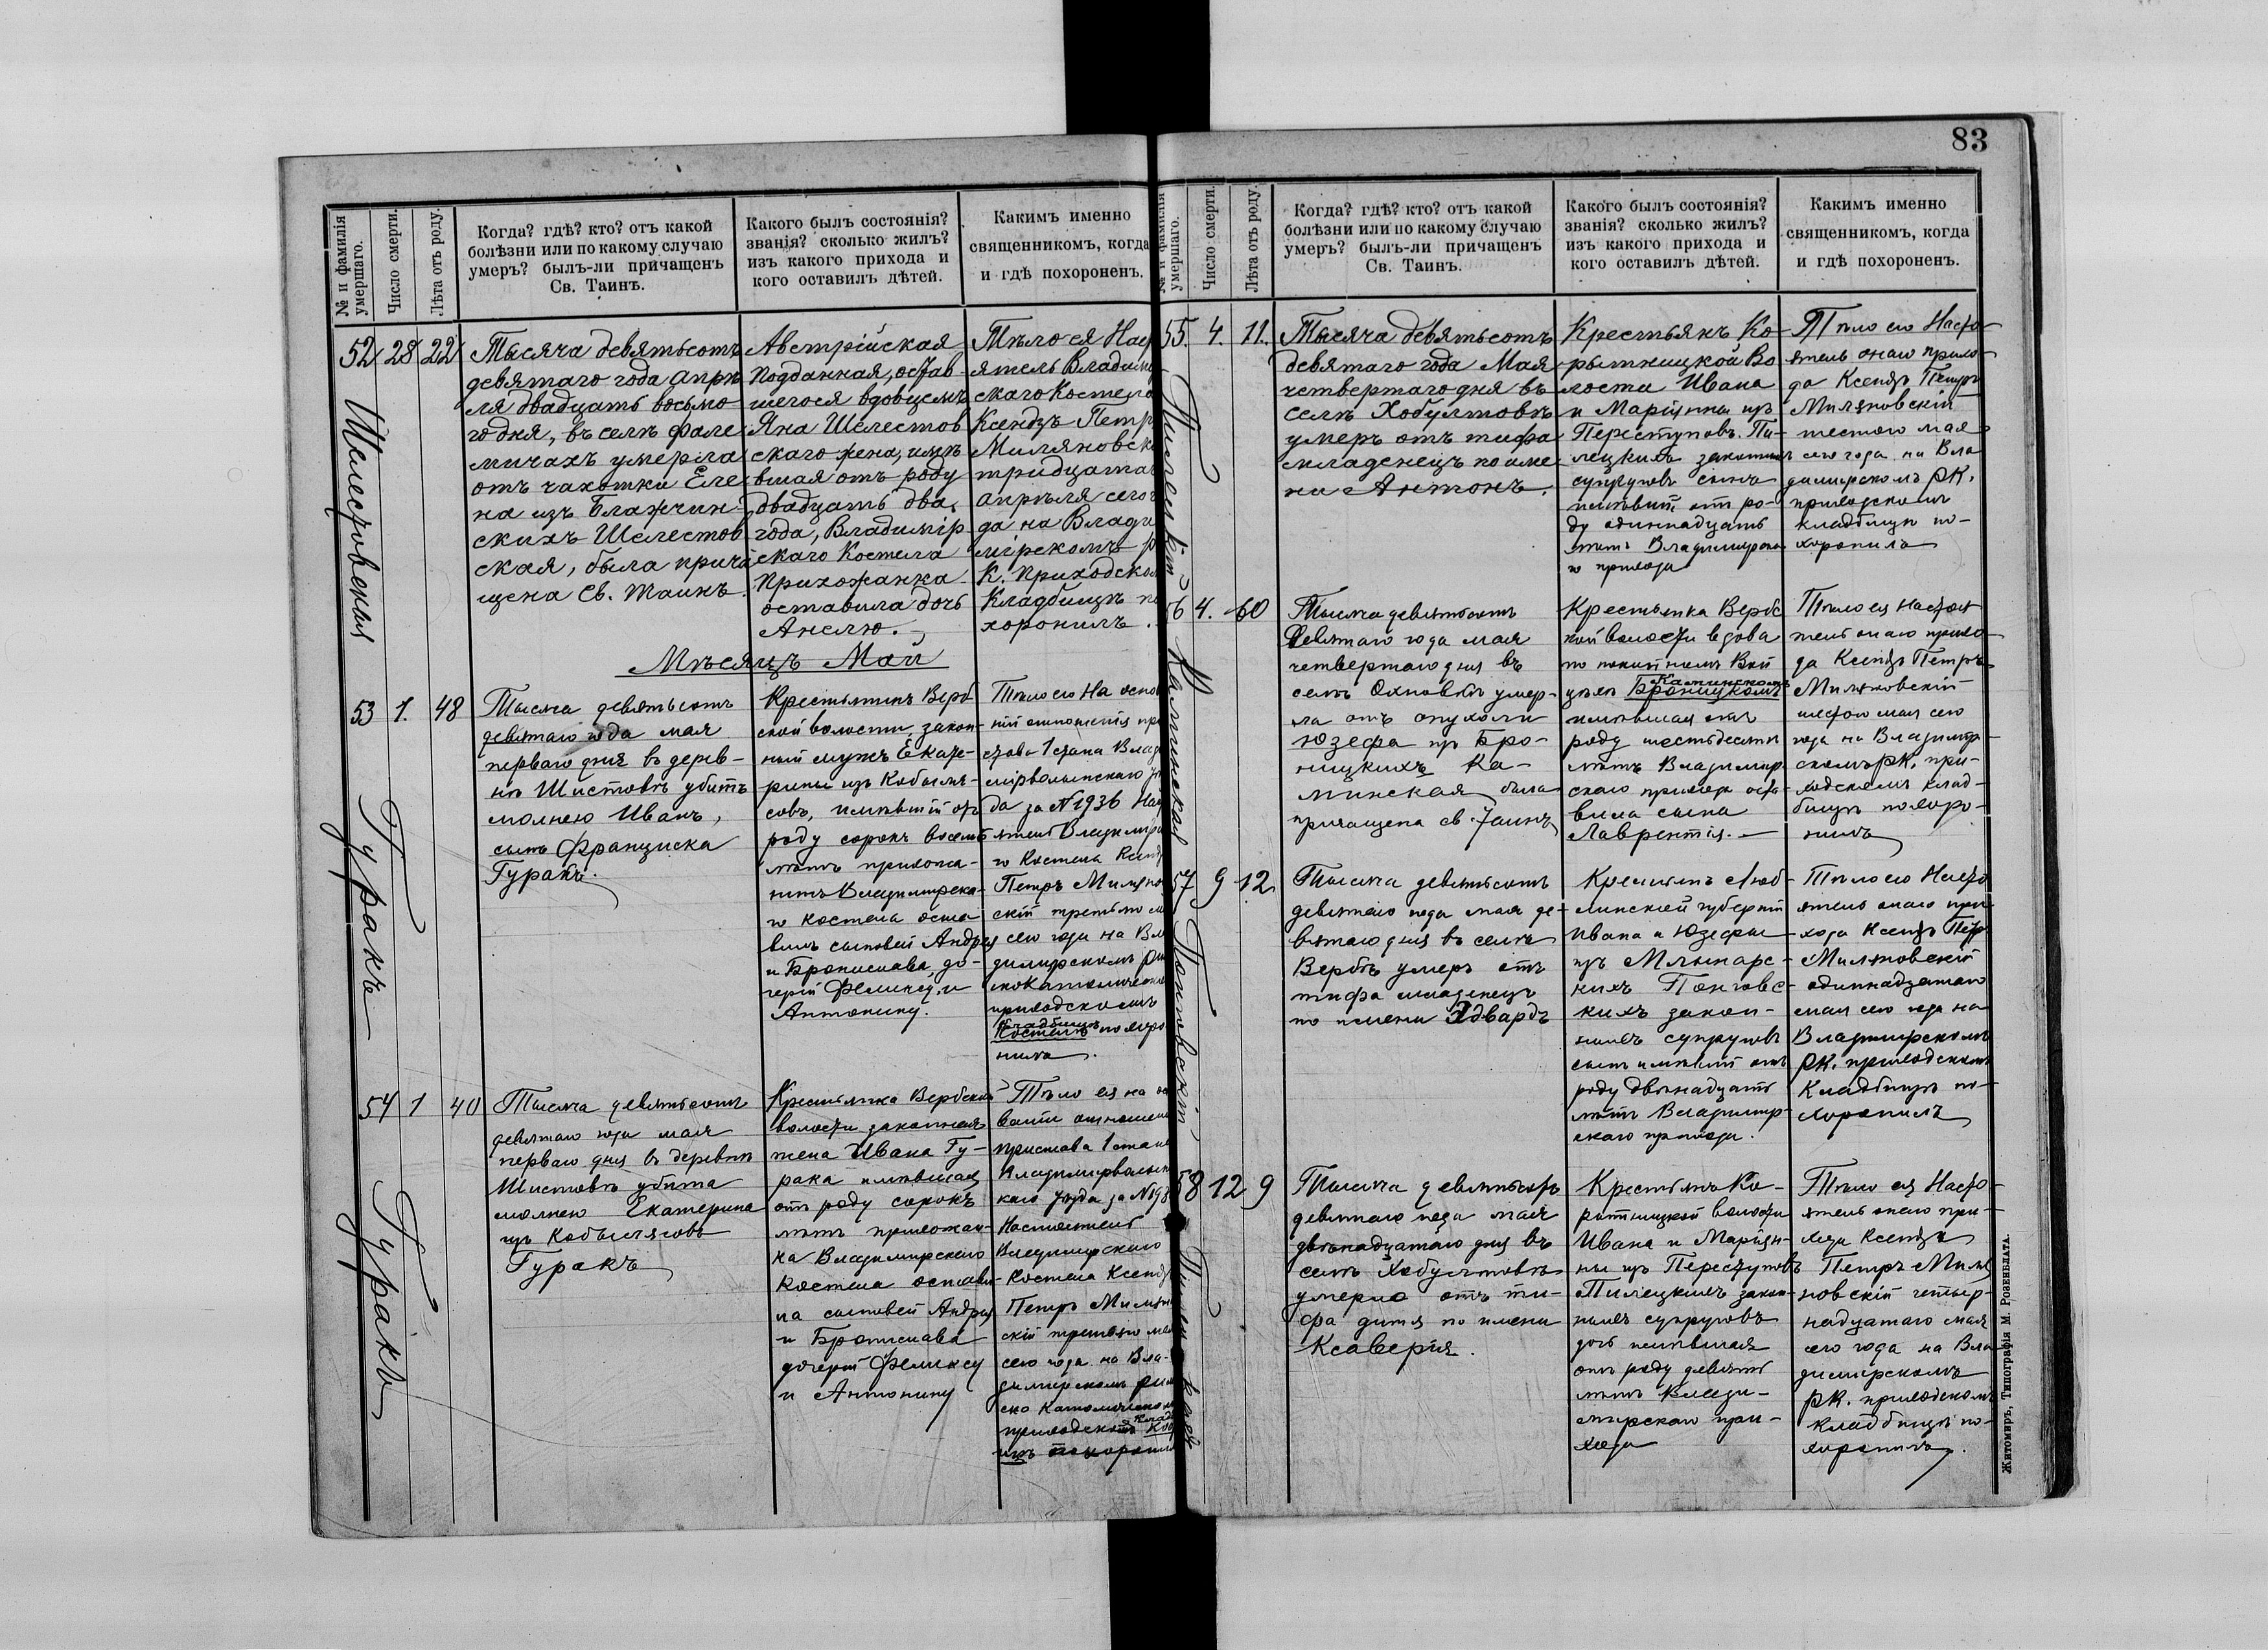 83
№ и фамилія
умершаго.
Число смерти.
Лѣта отъ роду.
Когда? гдѣ? кто? отъ какой
болѣзни или по какому случаю
умеръ? былъ-ли причащенъ
Св. Таинъ.
Какого былъ состоянія?
званія? сколько жилъ?
изъ какого прихода и
кого оставилъ дѣтей.
Какимъ именно
священникомъ, когда
и гдѣ похороненъ.
52 28 22
Шелестовская
Тысяча девятьсотъ
девятаго года апрѣ
ля двадцать восьмо
го дня, въ селѣ Фале
мичахъ умерла
отъ чахотки Еле
на изъ Блажчин-
скихъ Шелестов
ская, была прича
щена Св. Таинъ.
Австрійская
Подданная, остав-
шегося вдовцемъ
Яна Шелестов
скаго жена, имѣ
вшая отъ роду
двадцать два
года, Владимір
скаго Костела
Прихожанка
оставила дочь
Анелю.
Тѣло ея Наст
ятель Владим
скаго Костела
Ксендзъ Петр
Миляновск
тридцата
апрѣля сего
да на Влади
мірскомъ р
К. приходско
Кладбищѣ по
хоронилъ.
Мѣсяцъ Май
53 1. 48
Гуракъ
Тысяча девятьсотъ
девятаго года мая
перваго дня въ дерев-
нѣ Шистовѣ убитъ
молнею Иванъ,
сынъ Франциска
Гуракъ.
Крестьянинъ Верб
ской волости, закон
ный мужъ Екате-
рины изъ Кобыля-
совъ, имѣвшій отъ
роду сорокъ восемь
лѣтъ прихожа-
нинъ Владимірска-
го костела оста
вилъ сыновей Андрея
и Бронислава, до-
черей Феликсу и
Антонину.
Тѣло его На осно
ніи отношенія при
става 1 стана Влад
мірволынскаго уѣз
да за № 1936 Наст
ятель Владимірска
го Костела Ксендз
Петръ Миляно
скій третьяго м
сего года на Вла
димірскомъ рим
скокатолическо
приходскомъ
кладбищѣ
Костелѣ похоро
нилъ.
54 1 40
Гуракъ
Тысяча девятьсотъ
девятаго года мая
перваго дня въ деревнѣ
Шистовѣ убита
молнею Екатерина
изъ Кобылясовъ
Гуракъ
Крестьянка Вербской
волости законная
жена Ивана Гу-
рака имѣвшая
отъ роду сорокъ
лѣтъ прихожан-
ка Владимірскаго
костела остави-
ла сыновей Андрея
и Бронислава
дочерей Феликсу
и Антонину
Тѣло ея на ос
ваніи отношен
пристава 1 стана
Владимірволын
каго уѣзда за №193
Настоятель
Владимірскаго
Костела Ксендз
Петръ Милянов
скій третьяго мая
сего года на Вла-
димірскомъ рим
ско католическо
приходскомъ
похорони
№ и фамилія
умершаго.
Число смерти.
Лѣта отъ роду.
Когда? гдѣ? кто? отъ какой
болѣзни или по какому случаю
умеръ? былъ-ли причащенъ
Св. Таинъ.
Какого былъ состоянія?
званія? сколько жилъ?
изъ какого прихода и
кого оставилъ дѣтей.
Какимъ именно
священникомъ, когда
и гдѣ похороненъ.
55. 4. 11.
Пилецкій
Тысяча девятьсотъ
девятаго года Мая
четвертаго дня въ
селѣ Хобултовѣ
умеръ отъ тифа
младенецъ по име
ни Антонъ.
Крестьянъ Ко-
рытницкой Во
лости Ивана
и Маріянны изъ
Переступовъ Пи-
лецкихъ законныхъ
супруговъ сынъ
имѣвшій отъ ро-
ду одиннадцать
лѣтъ Владимірска
го прихода
Тѣло его Насто-
ятель онаго прихо-
да Ксендзъ Петръ
Миляновскій
шестого мая
сего года на Вла
димірскомъ РК.
приходскомъ
кладбищѣ по-
хоронилъ
56 4. 60
Каминская
Тысяча девятьсотъ
девятаго года мая
четвертаго дня въ
селѣ Охновкѣ умер-
ла отъ опухоли
Юзефа изъ Бро-
ницкихъ Ка-
минская была
причащена св. Таинъ
Крестьянка Вербс
кой волости вдова
по покойномъ Вой
Каминскомъ
цѣхѣ Броницкомъ
имѣвшая отъ
роду шестьдесятъ
лѣтъ Владимір
скаго прихода оста-
вила сына
Лаврентія. —
Тѣло ея Настоя
тель онаго прихо-
да Ксендзъ Петръ
Миляновскій
шестого мая сего
года на Владимір-
скомъ РК. при-
ходскомъ клад-
бищѣ похоро-
нилъ
57 9 12
Понговскій
Тысяча девятьсотъ
девятаго года мая де-
вятаго дня въ селѣ
Вербѣ умеръ отъ
тифа младенецъ
по имени Эдвардъ
Крестьянъ Люб-
линской губерніи
Ивана и Юзефы
изъ Млынарс-
кихъ Понговс-
кихъ закон-
ныхъ супруговъ
сынъ имѣвшій отъ
роду двѣнадцать
лѣтъ Владимір-
скаго прихода.
Тѣло его Насто
ятель онаго при-
хода Ксендзъ Петръ
Миляновскій
одиннадцатаго
мая сего года на
Владимірскомъ
РК. приходскомъ
Кладбищѣ по-
хоронилъ
58 12 9
Тысяча девятьсотъ
девятаго года мая
двѣнадцатаго дня въ
селѣ Хобултовѣ
умерло отъ ти-
фа дитя по имени
Ксаверія.
Крестьянъ Ко-
рытницкой волости
Ивана и Маріян-
ны изъ Переступовъ
Пилецкихъ закон-
ныхъ супруговъ
дочь имѣвшая
отъ роду девять
лѣтъ Влади-
мірскаго при-
хода
Тѣло ея Насто-
ятель онаго при-
хода Ксендзъ
Петръ Миля
новскій четыр-
надцатаго мая
сего года на Вла
димірскомъ
РК. приходскомъ
кладбищѣ по-
хоронилъ.
Житомиръ, Типографія М. Розенблата.